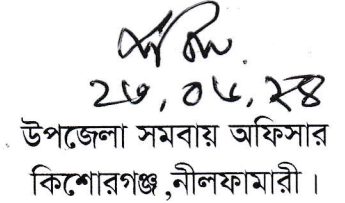 ২৬, ০৬, ২৪
উপজেলা সমবায় অফিসার
কিশোরগঞ্জ ,নীলফামারী ।